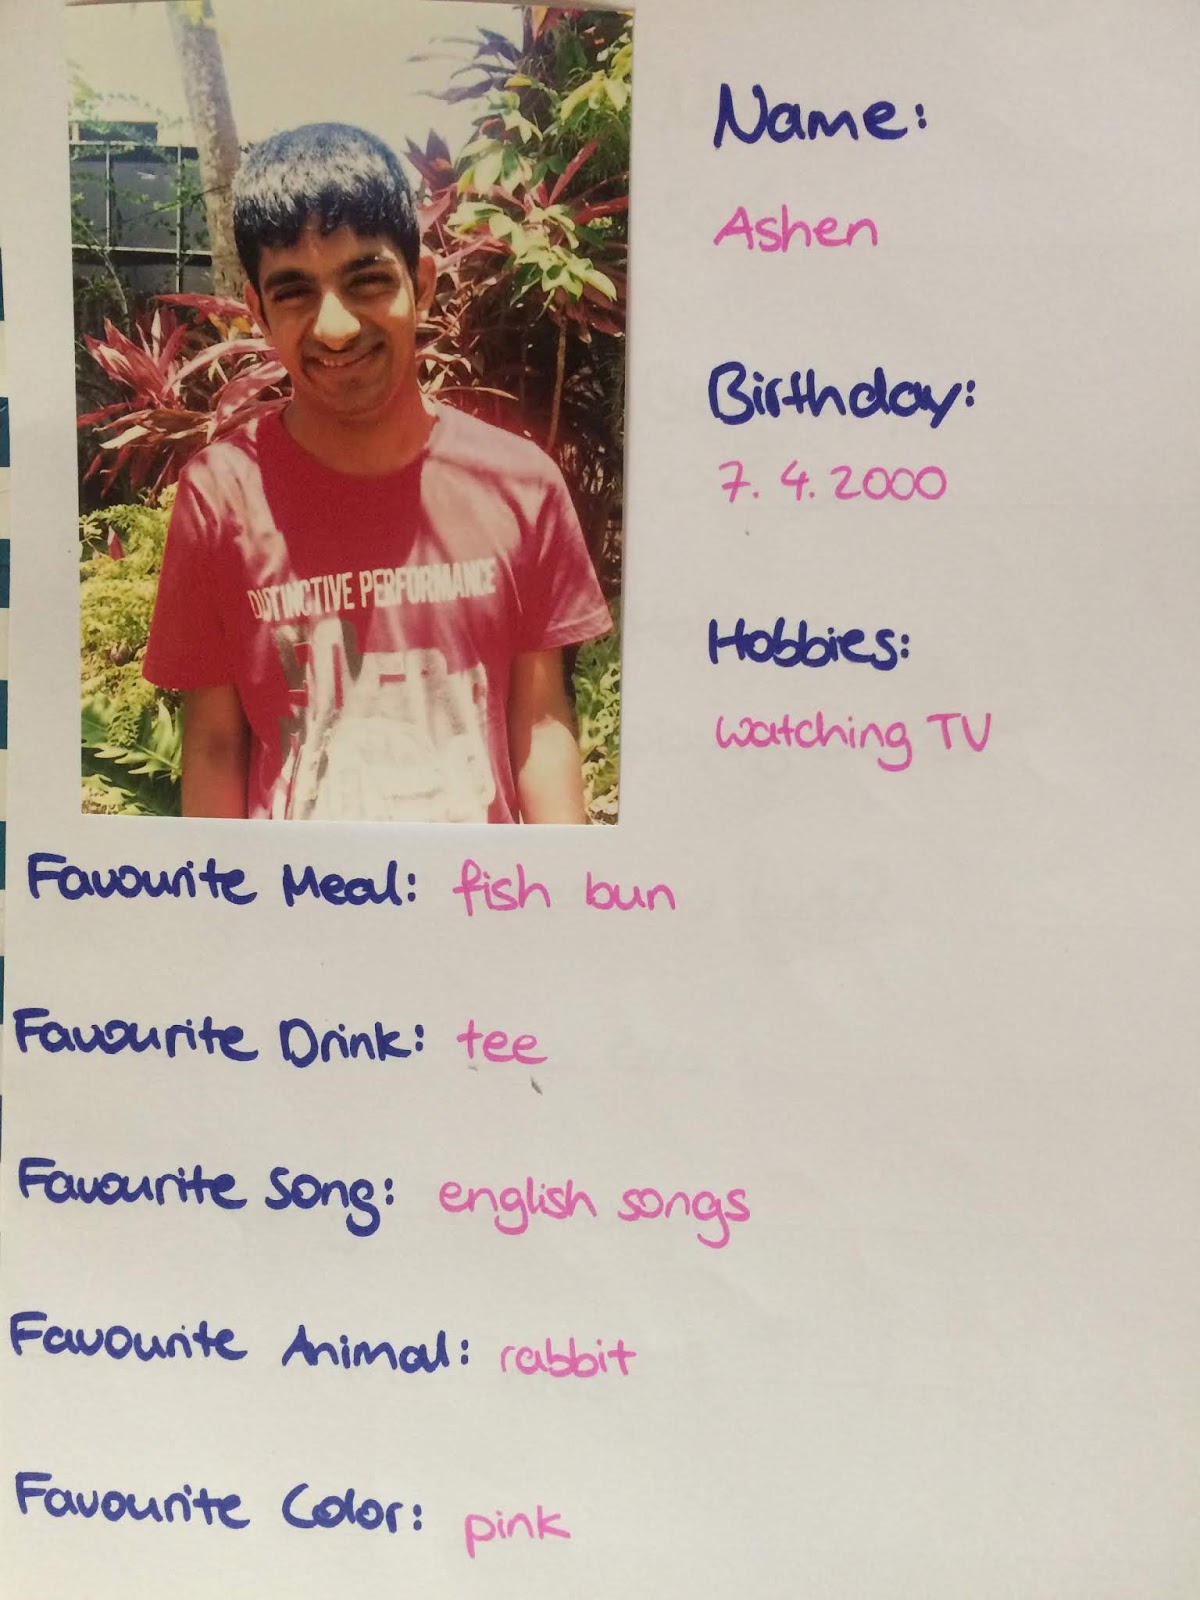 Name:
Ashen
Birthday:
7. 4. 2000
Hobbies:
watching TV
DISTINCTIVE PERFORMANCE
Favourite Meal: fish bun
Favourite Drink: tee
Favourite Song: english songs
Favourite Animal: rabbit
Favourite Color: pink